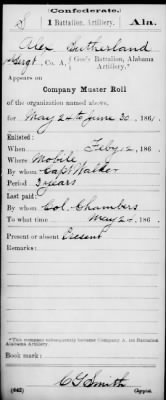 Confederate.
S 1 Battalion, Artillery. Ala.
Alex Sutherland
Sergt, Co. A, Gee's Battalion, Alabama Artillery.*
Appears on
Company Muster Roll
of the organization named above,
for May 24 to June 30, 1861.
Enlisted:
When Feby 12, 186 .
Where Mobile
By whom Capt Walker
Period 3 years
Last paid:
By whom Col. Chambers
To what time May 24, 186 .
Present or absent Present
Remarks:
*This company subsequently became Company A, 1st Battalion
Alabama Artillery.
Book mark:
(642) C G Smith
Copyist.